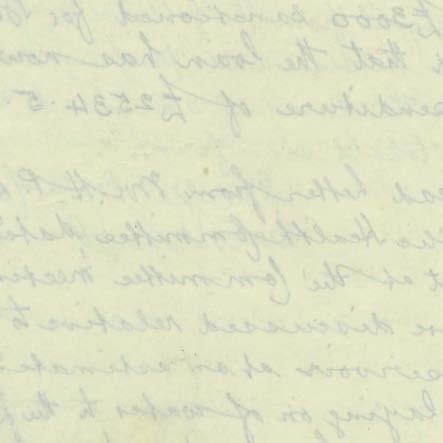 £3000 sanctioned for
that the loan has now
enditure of £2534.5
letter from Mr H P
Health Committee
at the Committee meeting
discussed relative to
at an estimate
laying on of water to the